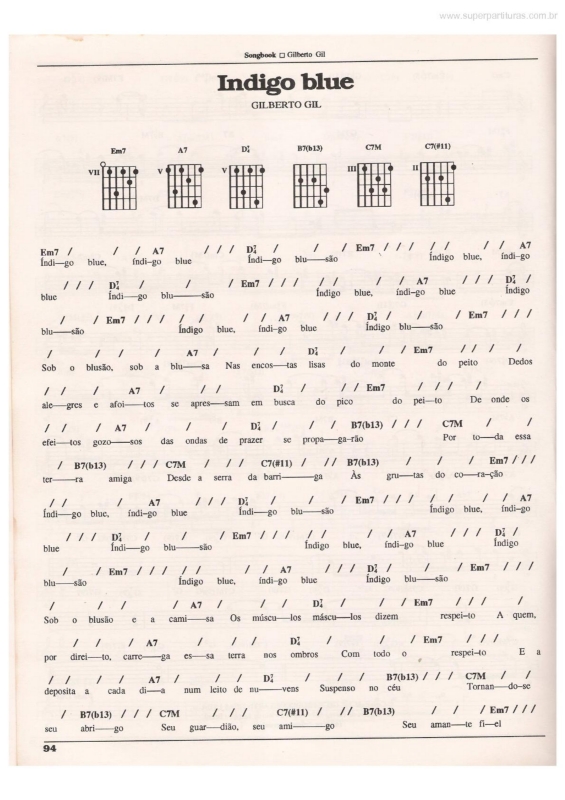 www.superpartituras.com.br
Songbook □ Gilberto Gil
Indigo blue
GILBERTO GIL
Em7 A7 D7/4 B7(b13) C7M C7(#11)
VII V V III II
Em7 / / / A7 / / / D7/4 / / / Em7 / / / / / / / A7
Índi—go blue, índi-go blue Índi—go blu—são Índigo blue, índi-go
/ / / D7/4 / / / Em7 / / / / / / / A7 / / / D7/4 /
blue Índi—go blu—são Índigo blue, índi-go blue Índigo
/ / Em7 / / / / / / / A7 / / / D7/4 / / / Em7 / / /
blu—são Índigo blue, índi-go blue Índigo blu—são
/ / / / A7 / / / D7/4 / / / Em7 / / / /
Sob o blusão, sob a blu—sa Nas encos—tas lisas do monte do peito Dedos
/ / / A7 / / / D7/4 / / / Em7 / / / /
ale—gres e afoi—tos se apres—sam em busca do pico do pei—to De onde os
/ / / A7 / / / D7/4 / / / B7(b13) / / / C7M / /
efei—tos gozo—sos das ondas de prazer se propa—ga-rão Por to—da essa
/ B7(b13) / / / C7M / / / C7(#11) / / / B7(b13) / / / Em7 / / /
ter—ra amiga Desde a serra da barri—ga Às gru—tas do co—ra-ção
/ / / A7 / / / D7/4 / / / Em7 / / / / / / / A7
Índi—go blue, índi-go blue Índi—go blu—são Índigo blue, índi-go
/ / / D7/4 / / / Em7 / / / / / / / A7 / / / D7/4 /
blue Índi—go blu—são Índigo blue, índi-go blue Índigo
/ / Em7 / / / / / / / A7 / / / D7/4 / / / Em7 / / /
blu—são Índigo blue, índi-go blue Índigo blu—são
/ / / / A7 / / / D7/4 / / / Em7 / / / /
Sob o blusão e a cami—sa Os múscu—los máscu—los dizem respei-to A quem,
/ / / A7 / / / D7/4 / / / Em7 / / /
por direi—to, carre—ga es—sa terra nos ombros Com todo o respei-to E a
/ / / / A7 / / / D7/4 / / / B7(b13) / / / C7M / /
deposita a cada di—a num leito de nu—vens Suspenso no céu Tornan—do-se
/ B7(b13) / / / C7M / / / C7(#11) / / / B7(b13) / / / Em7 / / /
seu abri—go Seu guar—dião, seu ami—go Seu aman—te fi—el
94